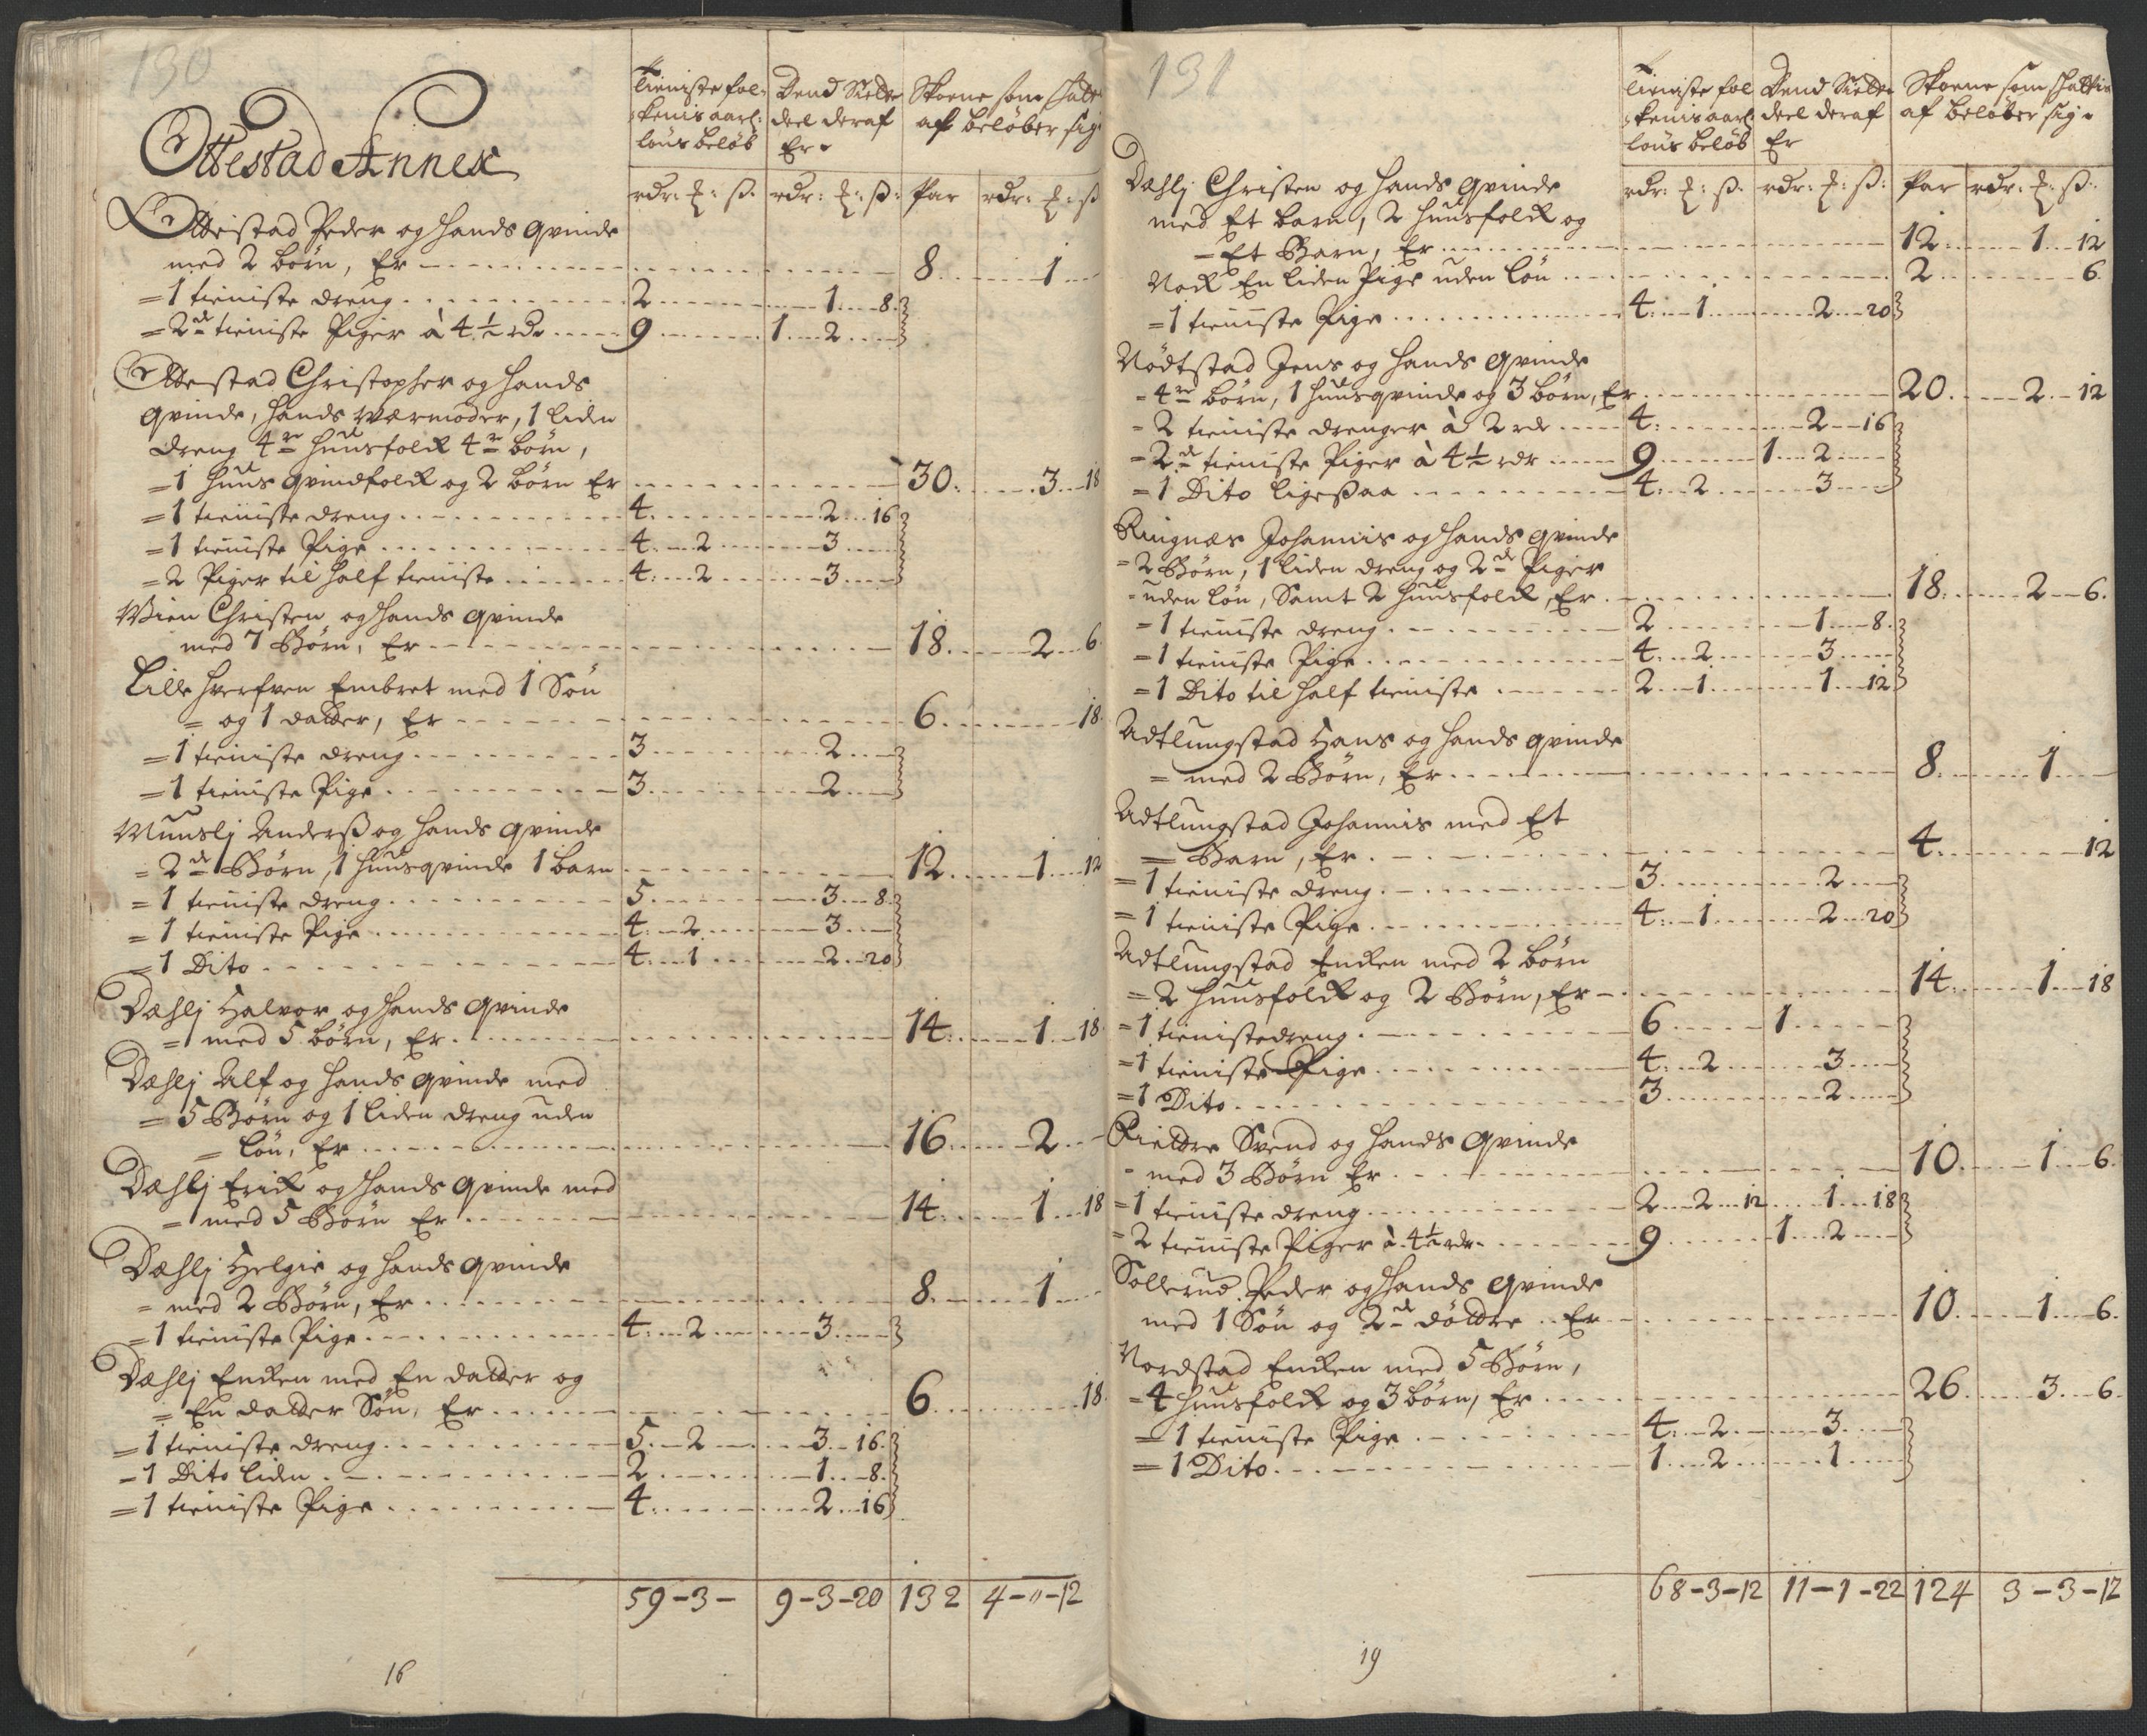 130
Tieniste fol-
kenis aarl:
löns beløb
Dend Siette
deel deraf
Er
Skoene som
af beløber sig
Ottestad Annex
rdr: ℥: ß: rdr: ℥: ß: Par rdr: ℥: ß
Ottestad Peder og hands qvinde
med 2 börn, Er 8 1
= 1 tieniste dreng 2 1 8
= 2de tieniste Piger à 4½ rdr 9 1 2
Ottestad Christopher og hands
qvinde, hands Værmoder, 1 liden
dreng 4re huusfolck 4re börn,
= 1 huus qvindfolck og 2 börn Er 30 3 18
= 1 tieniste dreng 4 2 16
= 1 tieniste Pige 4 2 3
= 2 Piger til half tieniste 4 2 3
Wien Christen og hands qvinde
med 7 Börn, Er 18 2 6
Lille Hverfven Embret med 1 Sön
= og 1 datter, Er 6 18
= 1 tieniste dreng 3 2
= 1 tieniste Pige 3 2
Wunslj Anderß og hands qvinde
= 2de Börn, 1 huusqvinde 1 barn 12 1 12
= 1 tieniste dreng 5 3 8
= 1 tieniste Pige 4 2 3
= 1 Dito 4 1 2 20
Dæhlj Halvor og hands qvinde
= med 5 börn, Er 14 1 18
Dæhlj Alf og hands qvinde med
= 5 Börn og 1 liden dreng uden
= lön, Er 16 2
Dæhlj Erick og hands qvinde med
= med 5 Börn Er 14 1 18
Dæhlj Helgie og hands qvinde
= med 2 Börn, Er 8 1
= 1 tieniste Pige 4 2 3
Dæhlj Encken med En datter og
= En datter Sön, Er 6 18
= 1 tieniste dreng 5 2 3 16
= 1 Dito liden 2 1 8
= 1 tieniste Pige 4 2 16
59-3- 9-3-20 132 4-"-12
16
131
Tieniste fol
kenis aarl
löns beløb
Dend Siette
deel deraf
Er
Skoene som skattis
af beløber sig
rdr: ℥: ß: rdr: ℥: ß: Par rdr: ℥: ß:
Dæhlj Christen og hands qvinde
med Et barn, 2 huusfolck og
= Et Barn, Er 12 1 12
Nock En liden Pige uden lön 2 6
= 1 tieniste Pige 4 1 2 20
Nödtstad Jens og hands qvinde
= 4re börn, 1 huusqvinde og 3 börn, Er 20 2 12
= 2 tieniste drenger à 2 rdr 4 2 16
= 2de tieniste Piger à 4½ rdr 9 1 2
= 1 Dito ligeßaa 4 2 3
Ringnæs Johannis og hands qvinde
= 2 Börn, 1 liden dreng og 2de Piger
= uden lön, Samt 2 huusfolck, Er 18 2 6
= 1 tieniste dreng 2 1 8
= 1 tieniste Pige 4 2 3
= 1 Dito til half tieniste 2 1 1 12
Adtlungstad Hans og hands qvinde
= med 2 Börn, Er 8 1
Adtlungstad Johannis med Et
= Barn, Er 4 12
= 1 tieniste dreng 3 2
= 1 tieniste Pige 4 1 2 20
Adtlungstad Encken med 2 börn
= 2 huusfolck og 2 Börn, Er 14 1 18
= 1 tienistedreng 6 1
= 1 tieniste Pige 4 2 3
= 1 Dito 3 2
Svend og hands qvinde
= med 3 Börn Er 10 1 6
= 1 tieniste dreng 2 2 12 1 18
= 2 tieniste Piger à 4½ rdr 9 1 2
Sollerud Peder og hands qvinde
med 1 Sön og 2de döttre Er 10 1 6
Nordstad Encken med 5 Börn,
= 4 huusfolck og 3 börn, Er 26 3 6
= 1 tieniste Pige 4 2 3
= 1 Dito 1 2 1
68-3-12 11-1-22 124 3-3-12
19